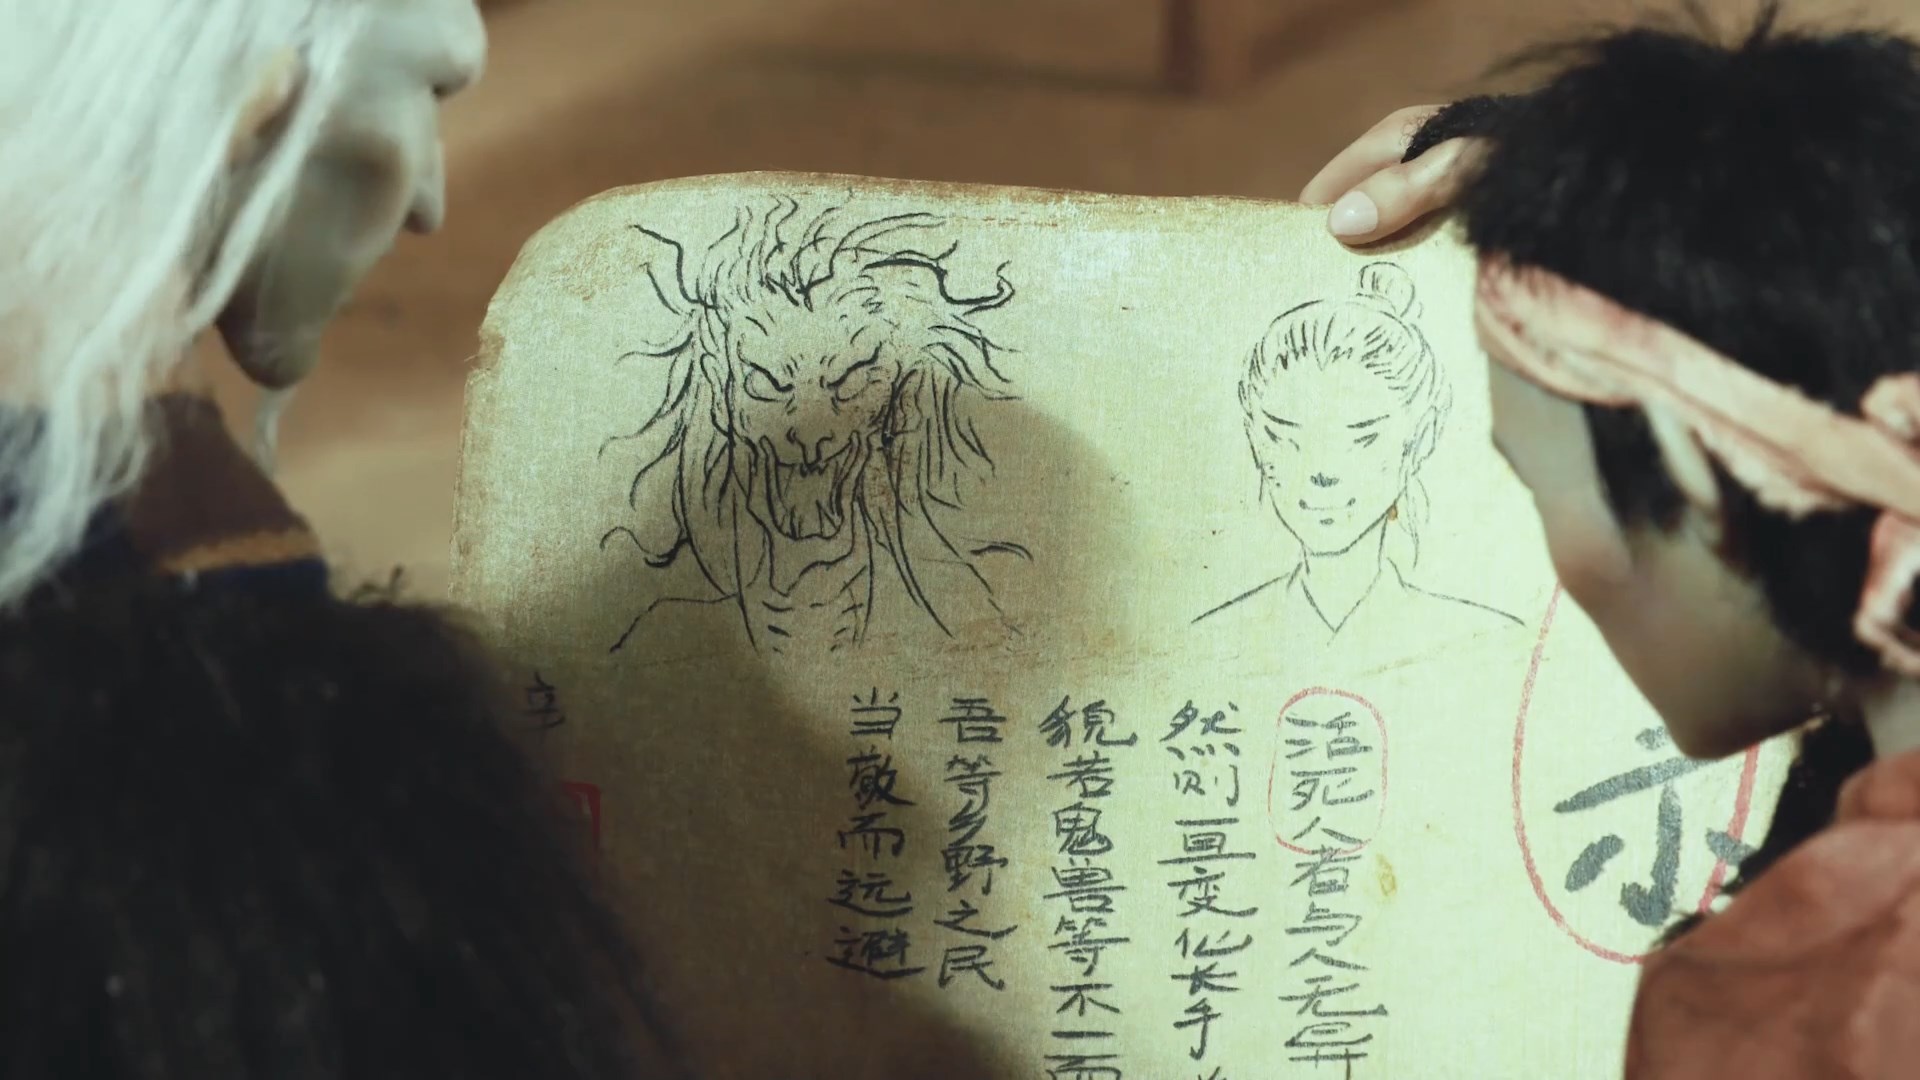 示
活死人者与人无异
然则亘变长手
貌若鬼兽等不一而
吾等乡野之民
当敬而远避